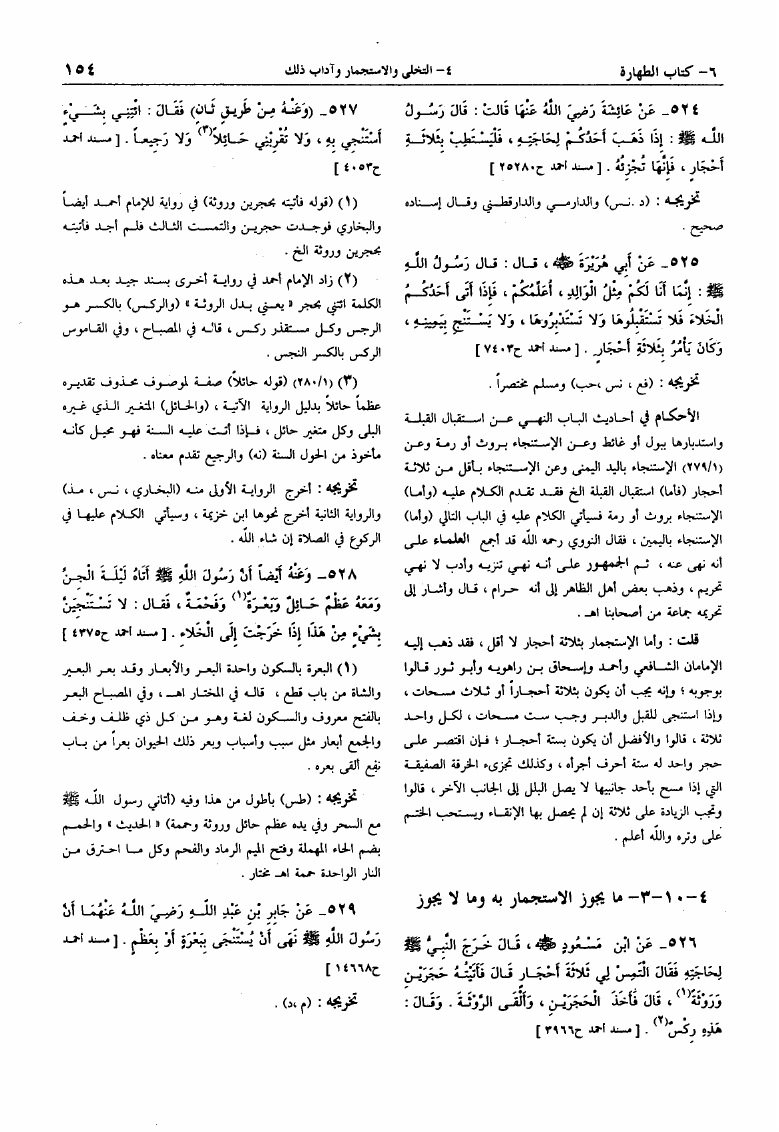 ٦- كتاب الطهارة ٤- التخلى والاستجمار وآداب ذلك ١٥٤
٥٢٤- عَنْ عَائِشَةَ رَضِيَ اللَّهُ عَنْهَا قَالَتْ : قَالَ رَسُولُ
اللَّه ﷺ : إِذَا ذَهَبَ أَحَدُكُمْ لِحَاجَتِهِ ، فَلْيَسْتَطِبْ بِثَلاثَةِ
أَحْجَارٍ ، فَإِنَّهَا تُجْزِئُهُ . [ مسند احمد ح٢٥٢٨٠ ]
تخريجه : (د .نس) والدارمي والدارقطني وقال إسناده
صحيح .
٥٢٥- عَنْ أَبِي هُرَيْرَةَ ﷺ ، قال : قال رَسُولُ اللَّهِ
ﷺ : إِنَّمَا أَنَا لَكُمْ مِثْلُ الْوَالِدِ ، أُعَلِّمُكُمْ ، فَإِذَا أَتَى أَحَدُكُمُ
الْخَلاءَ فَلا تَسْتَقْبِلُوهَا وَلا تَسْتَدْبِرُوهَا ، وَلا يَسْتَنْجِ بِيَمِينِهِ ،
وَكَانَ يَأْمُرُ بِثَلاثَةِ أَحْجَارٍ . [ مسند احمد ح٧٤٠٣ ]
تخريجه : (فع ، نس ،حب) ومسلم مختصراً .
الأحكام في أحاديث الباب النهي عن استقبال القبلة
واستدبارها ببول أو غائط وعن الإستنجاء بروث أو رمة وعن
(٢٧٩/١) الإستنجاء باليد اليمنى وعن الإستنجاء بأقل من ثلاثة
أحجار (فأما) استقبال القبلة الخ فقد تقدم الكلام عليه (وأما)
الإستنجاء بروث أو رمة فسيأتي الكلام عليه في الباب التالي (وأما)
الإستنجاء باليمين ، فقال النووي رحمه الله قد أجمع العلماء على
أنه نهى عنه ، ثم الجمهور على أنه نهي تنزيه وأدب لا نهي
تحريم ، وذهب بعض أهل الظاهر إلى أنه حرام ، قال وأشار إلى
تحريمه جماعة من أصحابنا اهـ .
قلت : وأما الإستجمار بثلاثة أحجار لا أقل ، فقد ذهب إليه
الإمامان الشافعي وأحمد وإسحاق بن راهويه وأبو ثور قالوا
بوجوبه ؛ وإنه يجب أن يكون بثلاثة أحجاراً أو ثلاث مسحات ،
وإذا استنجى للقبل والدبر وجب ست مسحات ، لكل واحد
ثلاثة ، قالوا والأفضل أن يكون بستة أحجار ؛ فإن اقتصر على
حجر واحد له ستة أحرف أجزأه ، وكذلك تجزىء الخرقة الصفيقة
التي إذا مسح بأحد جانبيها لا يصل البلل إلى الجانب الآخر ، قالوا
وتجب الزيادة على ثلاثة إن لم يحصل بها الإنقاء ويستحب الختم
على وتره والله أعلم .
٤-١٠-٣- ما يجوز الاستجمار به وما لا يجوز
٥٢٦- عَنْ ابْنِ مَسْعُودٍ ، قَالَ خَرَجَ النَّبِيُّ ﷺ
لِحَاجَتِهِ فَقَالَ الْتَمِسْ لِي ثَلاثَةَ أَحْجَارٍ قَالَ فَأَتَيْتُهُ حَجَرَيْنِ
وَرَوْثَةٌ(١) ، قَالَ فَأَخَذَ الْحَجَرَيْنِ ، وَأَلْقَى الرَّوْثَةَ . وَقَالَ :
هَذِهِ رِكْسٌ(٢) . [ مسند احمد ح٣٩٦٦ ]
٥٢٧- (وَعَنْهُ مِنْ طَرِيقٍ ثَانٍ) فَقَالَ : ائْتِنِي بِشَيْءٍ
أَسْتَنْجِي بِهِ ، وَلا تُقْرِبْنِي حَائِلاً(٣) وَلا رَجِيعاً . [ مسند احمد
ح٤٠٥٣ ]
(١) (قوله فأتيته بحجرين وروثة) في رواية للإمام أحمد أيضاً
والبخاري فوجدت حجرين والتمست الثالث فلم أجد فأتيته
بحجرين وروثة الخ .
(٢) زاد الإمام أحمد في رواية أخرى بسند جيد بعد هذه
الكلمة ائتني بحجر « يعني بدل الروثة » (والركس) بالكسر هو
الرجس وكل مستقذر ركس ، قاله في المصباح ، وفي القاموس
الركس بالكسر النجس .
(٣) (٢٨٠/١) (قوله حائلاً) صفة لموصوف محذوف تقديره
عظماً حائلاً بدليل الرواية الآتية ، (والحائل) المتغير الذي غيره
البلى وكل متغير حائل ، فإذا أتت عليه السنة فهو محيل كأنه
مأخوذ من الحول السنة (نه) والرجيع تقدم معناه .
تخريجه : أخرج الرواية الأولى منه (البخاري ، نس ، مذ)
والرواية الثانية أخرج نحوها ابن خزيمة ، وسيأتي الكلام عليها في
الركوع في الصلاة إن شاء الله .
٥٢٨- وَعَنْهُ أَيْضاً أَنْ رَسُولَ اللَّهِ ﷺ أَتَاهُ لَيْلَةَ الْجِنِّ
وَمَعَهُ عَظْمٌ حَائِلٌ وَبَعْرَةٌ(١) وَفَحْمَةٌ ، فَقَالَ : لا تَسْتَنْجِيَنَّ
بِشَيْءٍ مِنْ هَذَا إِذَا خَرَجْتَ إِلَى الْخَلاءِ . [ مسند احمد ح٤٣٧٥ ]
(١) البعرة بالسكون واحدة البعر والأبعار وقد بعر البعير
والشاة من باب قطع ، قاله في المختار اهـ ، وفي المصباح البعر
بالفتح معروف والسكون لغة وهو من كل ذي ظلف وخف
والجمع أبعار مثل سبب وأسباب وبعر ذلك الحيوان بعراً من باب
نفع ألقى بعره .
تخريجه : (طس) بأطول من هذا وفيه (أتاني رسول الله ﷺ
مع السحر وفي يده عظم حائل وروثة وحمة) « الحديث » والحمم
بضم الحاء المهملة وفتح الميم الرماد والفحم وكل ما احترق من
النار الواحدة حممة اهـ مختار .
٥٢٩- عَنْ جَابِرِ بْنِ عَبْدِ اللَّهِ رَضِيَ اللَّهُ عَنْهُمَا أَنَّ
رَسُولَ اللَّهِ ﷺ نَهَى أَنْ يُسْتَنْجَى بِبَعْرَةٍ أَوْ بِعَظْمٍ . [ مسند احمد
ح١٤٦٦٨ ]
تخريجه : (م ،د) .